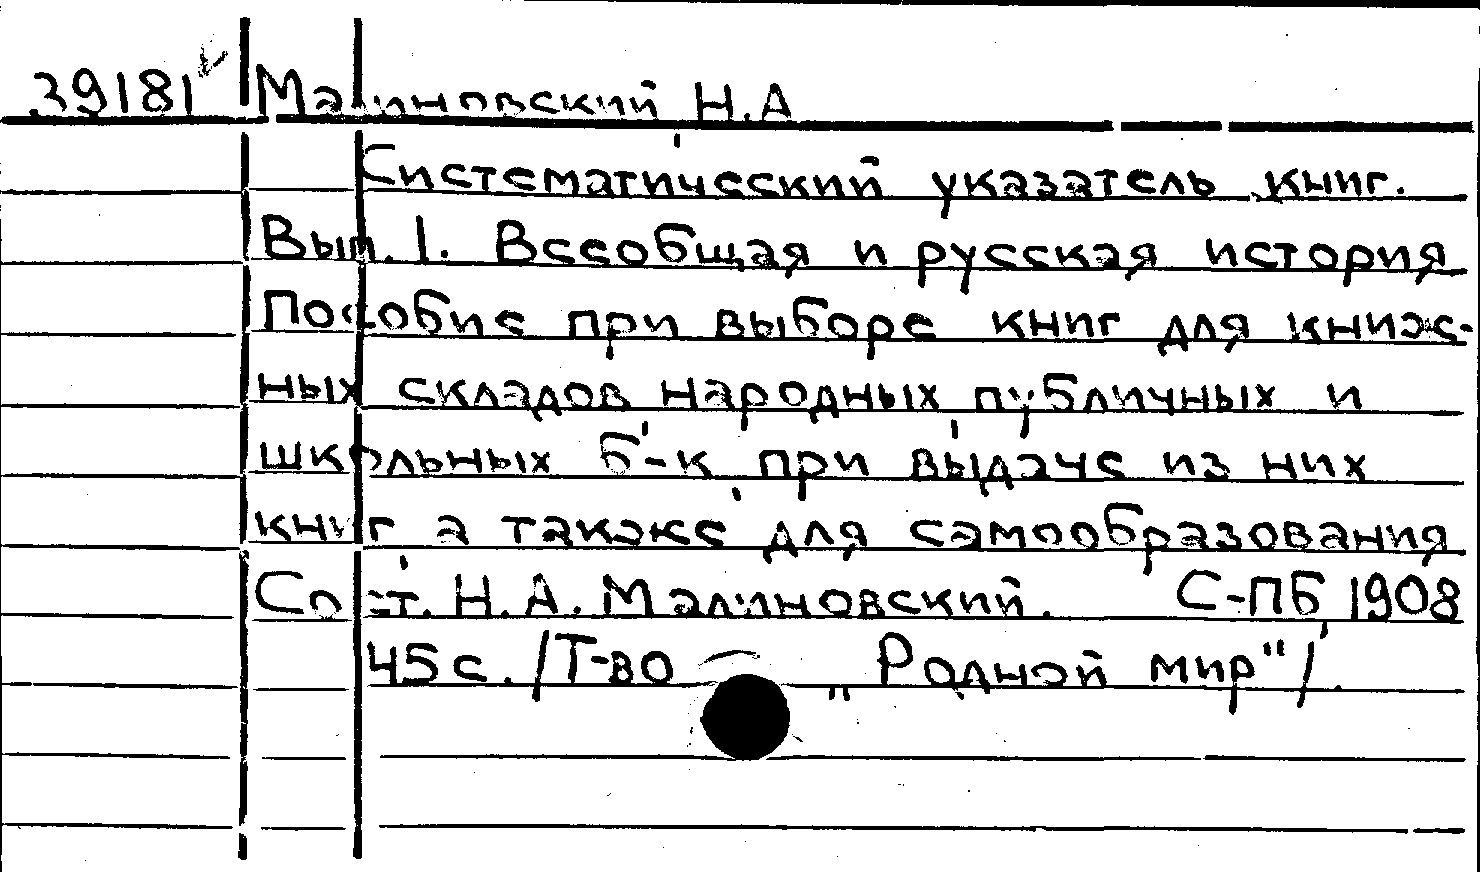 39181 Малиновский Н.А
Систематический указатель книг.
Вып. 1. Всеобщая и русская история
Пособие при выборе книг для книж-
ных складов народных публичных и
школьных б-к при выдаче из них
книг а также для самообразования
Сост. Н.А. Малиновский. С-ПБ, 1908
45 с. /Т-во „Родной мир"/.